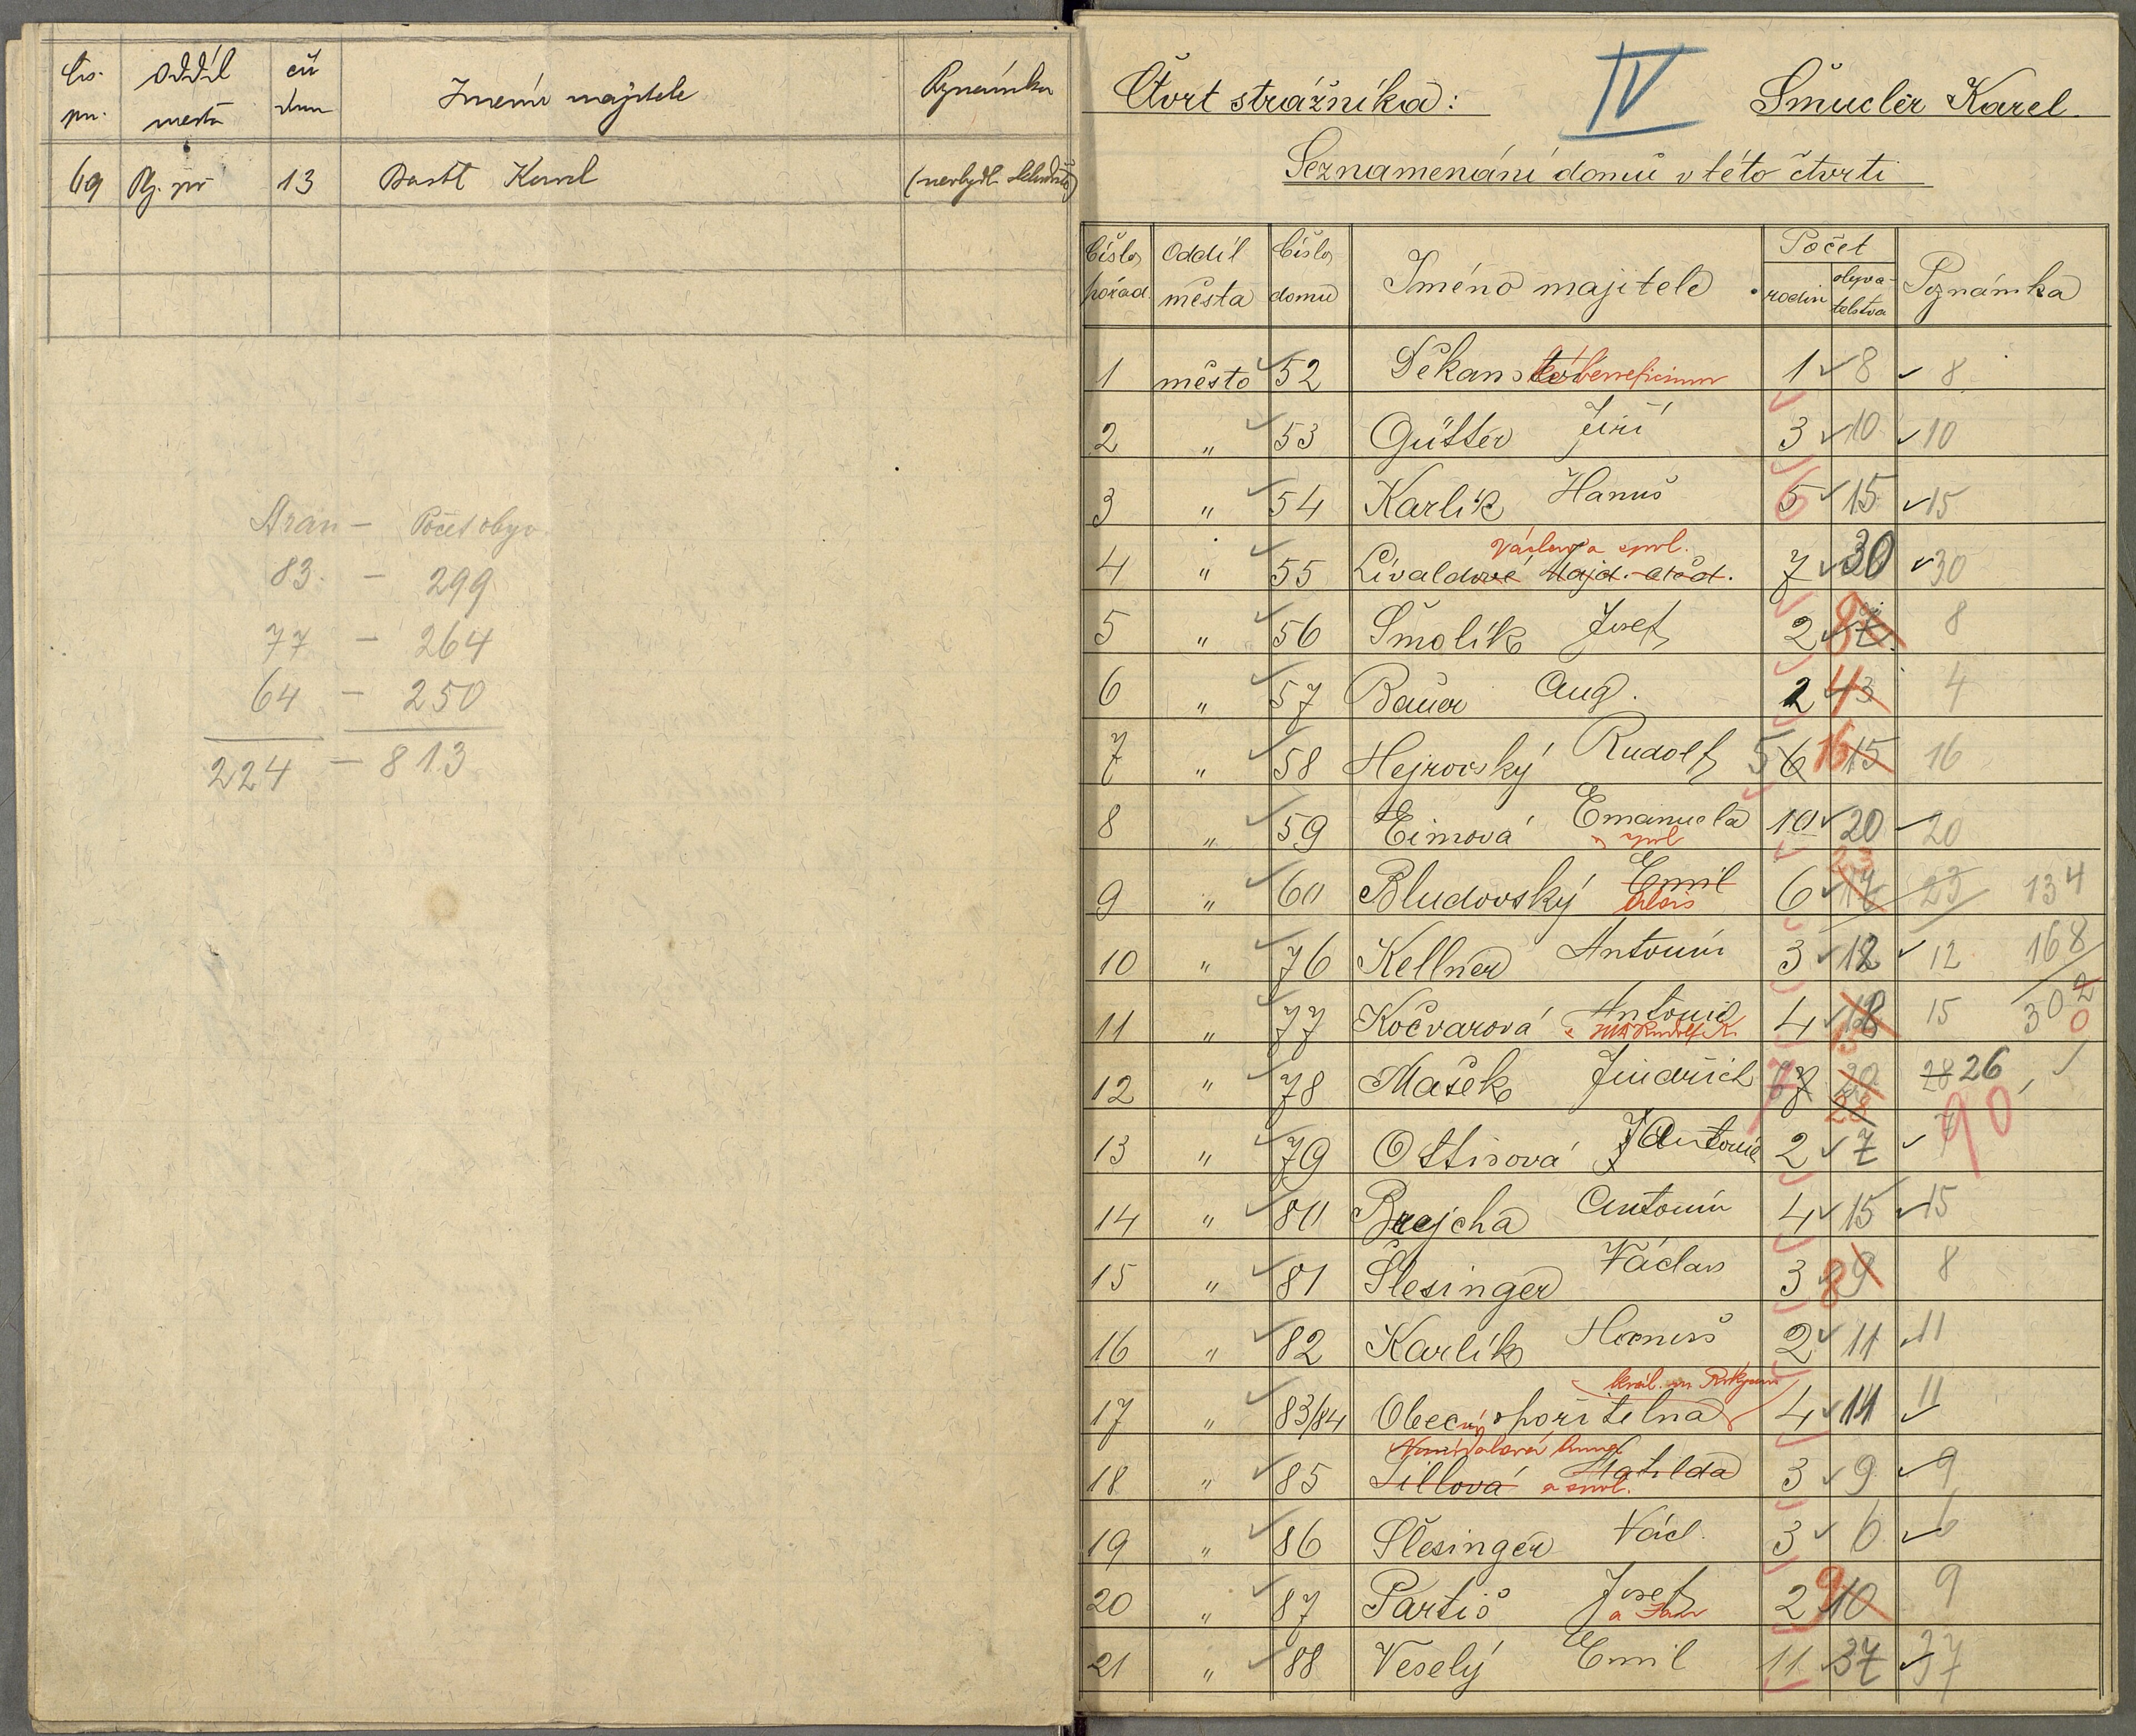 čís. Oddíl čís. Jméno majitele Poznámka
poř. města domu
69 Plz. př. 13 Karel
Stran — Počet obyv.
83. — 299
77 — 264
64 — 250
224 — 813
Čtvrt strážníka: IV Šmucler Karel.
Seznamenání domů v této čtvrti
Číslo Oddíl Číslo Jméno majitele Počet Poznámka
pořad. města domu rodin obyvatelstva
1 město 52 Děkanství beneficium 1 8 8
2 " 53 Gütter Jiří 3 10 10
3 " 54 Karlík Hanuš 5 6 15 15
Václav a spol.
4 " 55 Livaldové Majd. a tod. 7 30 30
5 " 56 Šmolík Josef 2 8 8
6 " 57 Bauer Aug. 2 4 3 4
7 " 58 Hejrovský Rudolf 5 6 16 15 16
8 " 59 Eimová Emanuela 10 20 20
a spol
9 " 60 Bludovský Emil 6 23 17 23 134
Alois
10 " 76 Kellner Antonín 3 12 12 168
11 " 77 Kočvarová Antonie 4 18 15 15 302 0
12 " 78 Mašek Jindřich 7 20 28 28 26
13 " 79 Ottisová Antonie 2 7 7 90
14 " 80 Brejcha Antonín 4 15 15
15 " 81 Šlesinger Václav 3 8 9 8
16 " 82 Karlík Hanuš 2 11 11
král. m. Rokycan
17 " 83/84 Obecní spořitelna 4 11 11
Anna
18 " 85 Tillová Matilda 3 9 9
a spol.
19 " 86 Šlesinger Václ. 3 6 6
20 " 87 Partiš Josef 2 9 10 9
21 " 88 Veselý Emil 11 37 37